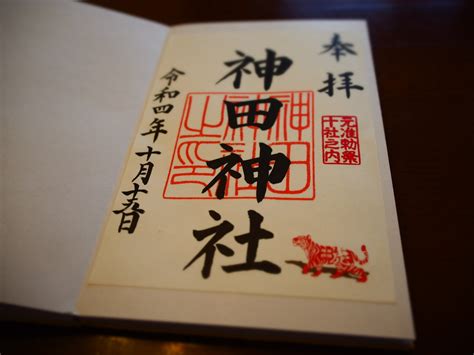 奉拝
元准勅祭
十社之内
神田神社
神田
神社
之印
令和四年十月十五日